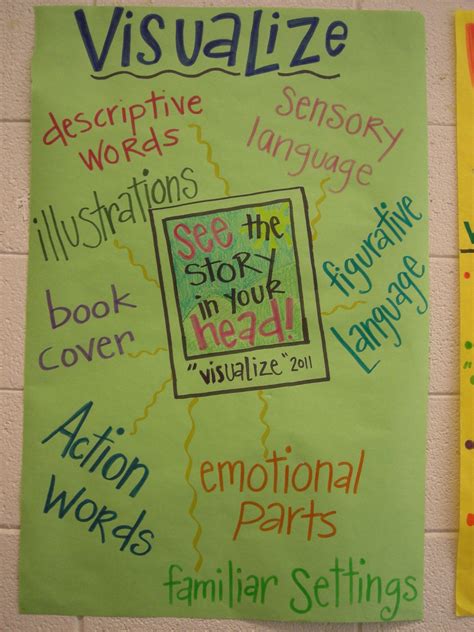 VISUALIZE
descriptive
WORDS
sensory
language
illustrations
see the
STORY
in your
head!
"visualize" 2011
figurative
Language
book
cover
Action
Words
emotional
Parts
familiar Settings